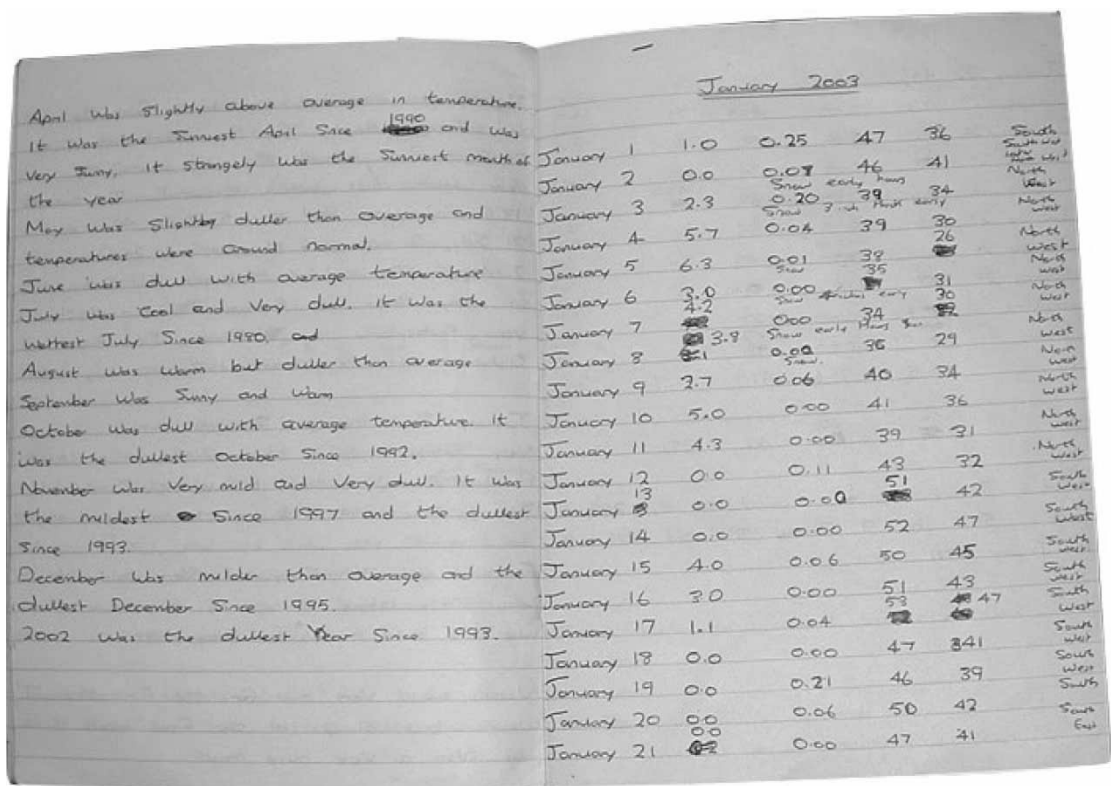 April was slightly above average in temperature.
It was the Sunniest April Since 1990 and was
Very Sunny. It Strangely was the Sunniest month of
the year
May was Slightly duller than average and
temperatures were around normal.
June was dull with average temperature
July was Cool and Very dull. It was the
wettest July Since 1980. and
August was warm but duller than average
September was Sunny and warm
October was dull with average temperature. It
was the dullest October Since 1992.
November was Very mild and Very dull. It was
the mildest Since 1997 and the dullest
Since 1993.
December was milder than average and the
dullest December Since 1995.
2002 was the dullest Year Since 1993.
January 2003
January 1 1.0 0.25 47 36 South South West
January 2 0.0 0.07 46 41 North West
Snow early hours
January 3 2.3 0.20 39 34 North West
Snow early
January 4 5.7 0.04 39 30 North West
January 5 6.3 0.01 38 26 North West
Snow
January 6 3.0 0.00 35 31 North West
Snow early
January 7 4.2 0.00 34 30 North West
Snow early
January 8 3.8 0.00 36 29 North West
Snow.
January 9 2.7 0.06 40 34 North West
January 10 5.0 0.00 41 36 North West
January 11 4.3 0.00 39 31 North West
January 12 0.0 0.11 43 32 North West
January 13 0.0 0.00 51 42 South West
January 14 0.0 0.00 52 47 South West
January 15 4.0 0.06 50 45 South West
January 16 3.0 0.00 51 43 South West
January 17 1.1 0.04 53 47 South West
January 18 0.0 0.00 47 41 South West
January 19 0.0 0.21 46 39 South West
January 20 0.0 0.06 50 42 South
January 21 0.0 0.00 47 41 South East